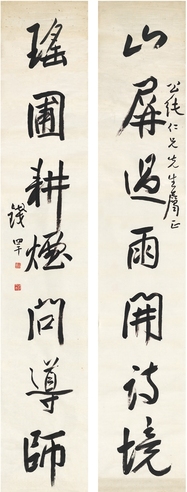 山屏過雨開詩境
公純仁兄先生屬正
瑤圃耕煙問導師